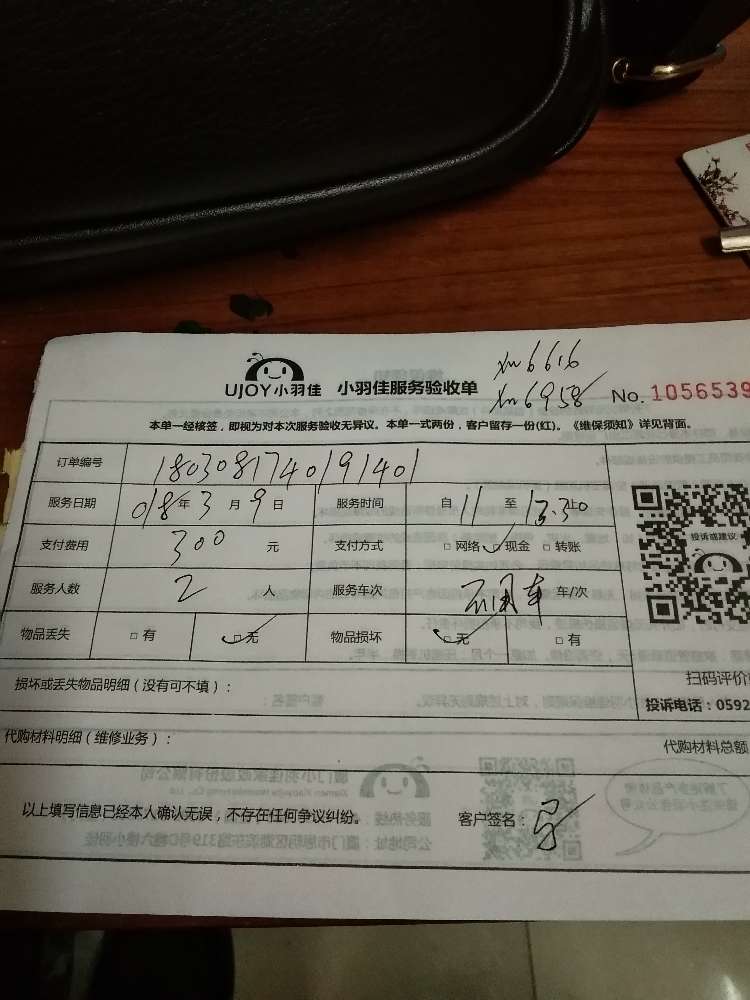 xm6616
UJOY小羽佳 小羽佳服务验收单 xm6958 No. 1056539
本单一经核签，即视为对本次服务验收无异议。本单一式两份，客户留存一份(红)。《维保须知》详见背面。
订单编号 1803081740191401
服务日期 018年3月9日 服务时间 自11至13:30止
支付费用 300元 支付方式 □网络 □现金 □转账
投诉或建议
服务人数 2人 服务车次 不用车 车/次
物品丢失 □有 □无 物品损坏 □无 □有
扫码评价
损坏或丢失物品明细（没有可不填）： 投诉电话：0592
代购材料明细（维修业务）： 代购材料总额
以上填写信息已经本人确认无误，不存在任何争议纠纷。 客户签名：